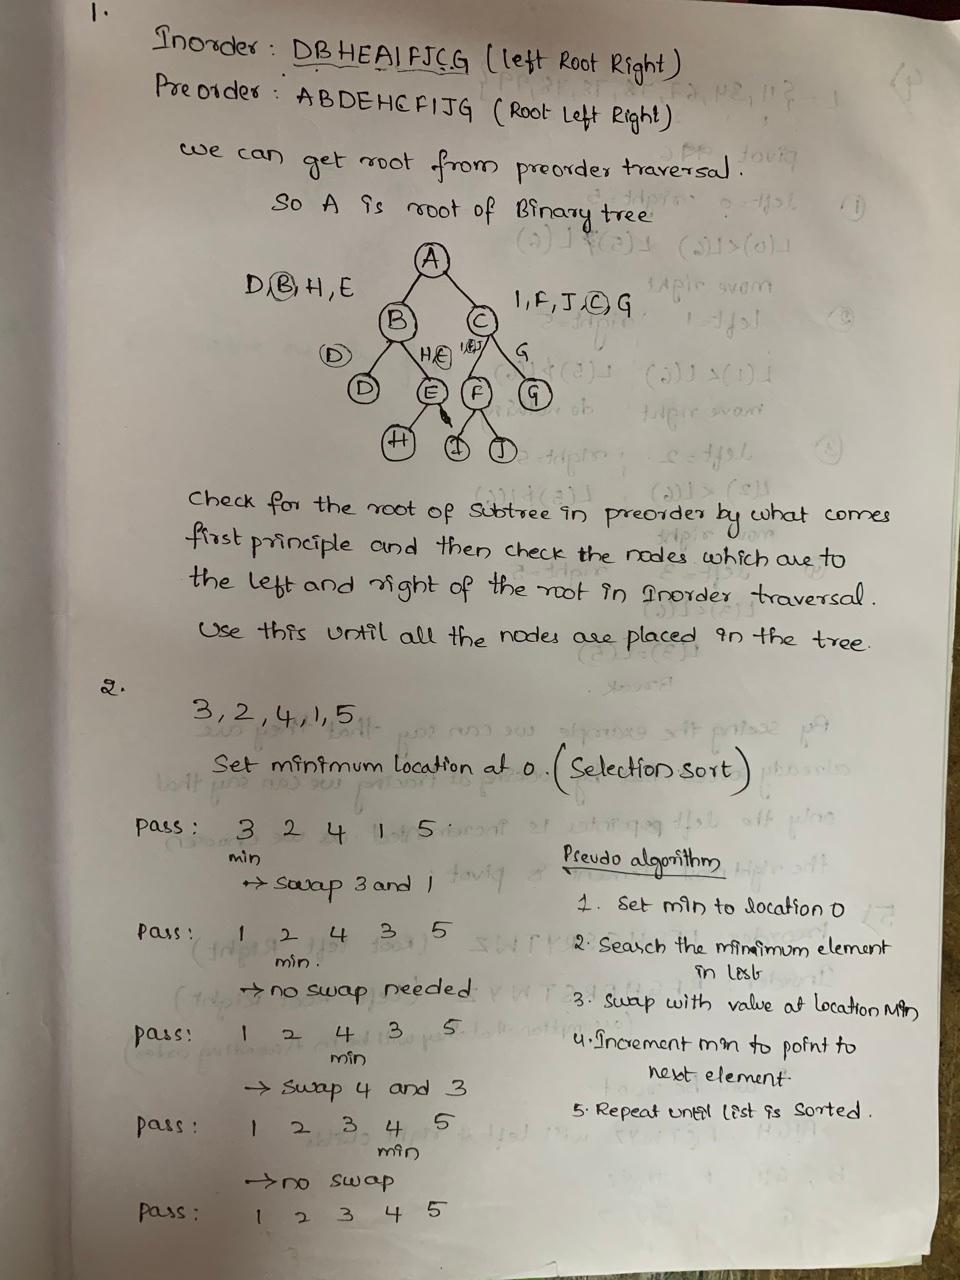 1.
Inorder : DBHEAIFJCG (left Root Right)
Preorder : ABDEHCFIJG (Root Left Right)
we can get root from preorder traversal.
So A is root of Binary tree
A
D,B,H,E
I,F,J,C,G
B C
D H,E I,F,J G
D E F G
H I J
Check for the root of Subtree in preorder by what comes
first principle and then check the nodes which are to
the left and right of the root in Inorder traversal.
Use this until all the nodes are placed in the tree.
2.
3,2,4,1,5
Set minimum location at 0. (Selection sort)
Pass : 3 2 4 1 5
min
→ Swap 3 and 1
Pass : 1 2 4 3 5
min.
→ no swap needed
Pass: 1 2 4 3 5
min
→ Swap 4 and 3
Pass : 1 2 3 4 5
min
→ no swap
Pass : 1 2 3 4 5
Pseudo algorithm
1. Set min to location 0
2. Search the minimum element
in list
3. Swap with value at location Min
4. Increment min to point to
next element.
5. Repeat until list is sorted.